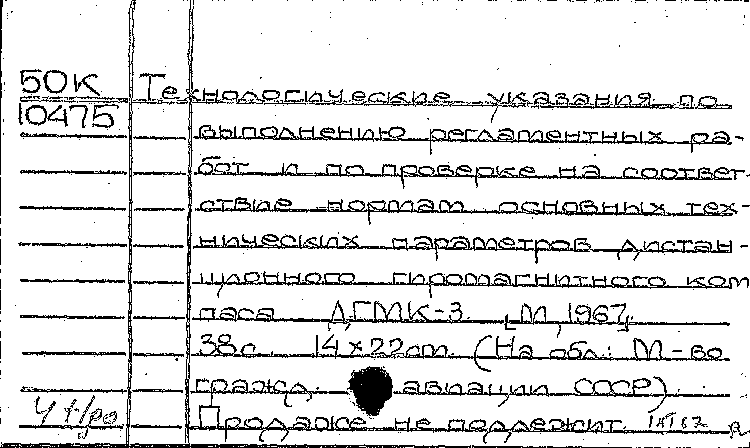 50К Технологические указания по
10475 выполнению регламентных ра-
бот и по проверке на соответ-
ствие нормам основных тех-
нических параметров дистан-
ционного гиромагнитного ком
паса ДГМК-3. [М, 1967].
38с. 14×22cm. (На обл.: М-во
гражд. авиации СССР).
Продаже не подлежит.